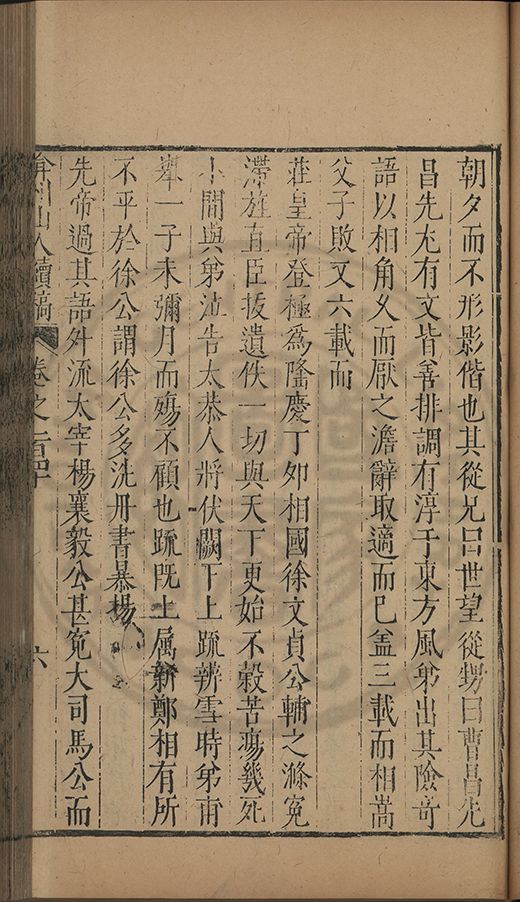 朝夕而不形影偕也其從兄曰世望從甥曰曹昌先
昌先尤有文皆善排調有淳于東方風弟出其險竒
語以相角久而厭之澹辭取適而已盖三載而相嵩
父子敗又六載而
莊皇帝登極為隆慶丁夘相國徐文貞公輔之滌寃
滯旌直臣拔遺佚一切與天下更始不穀苦瘍幾死
小間與弟泣告太恭人將伏闕下上疏辨雪時弟甫
舉一子未彌月而殤不顧也疏既上属新鄭相有所
不平於徐公謂徐公多洗册書暴楊
先帝過其語外流太宰楊襄毅公甚寃大司馬公而
弇州山人續稿 卷之一百四十 六